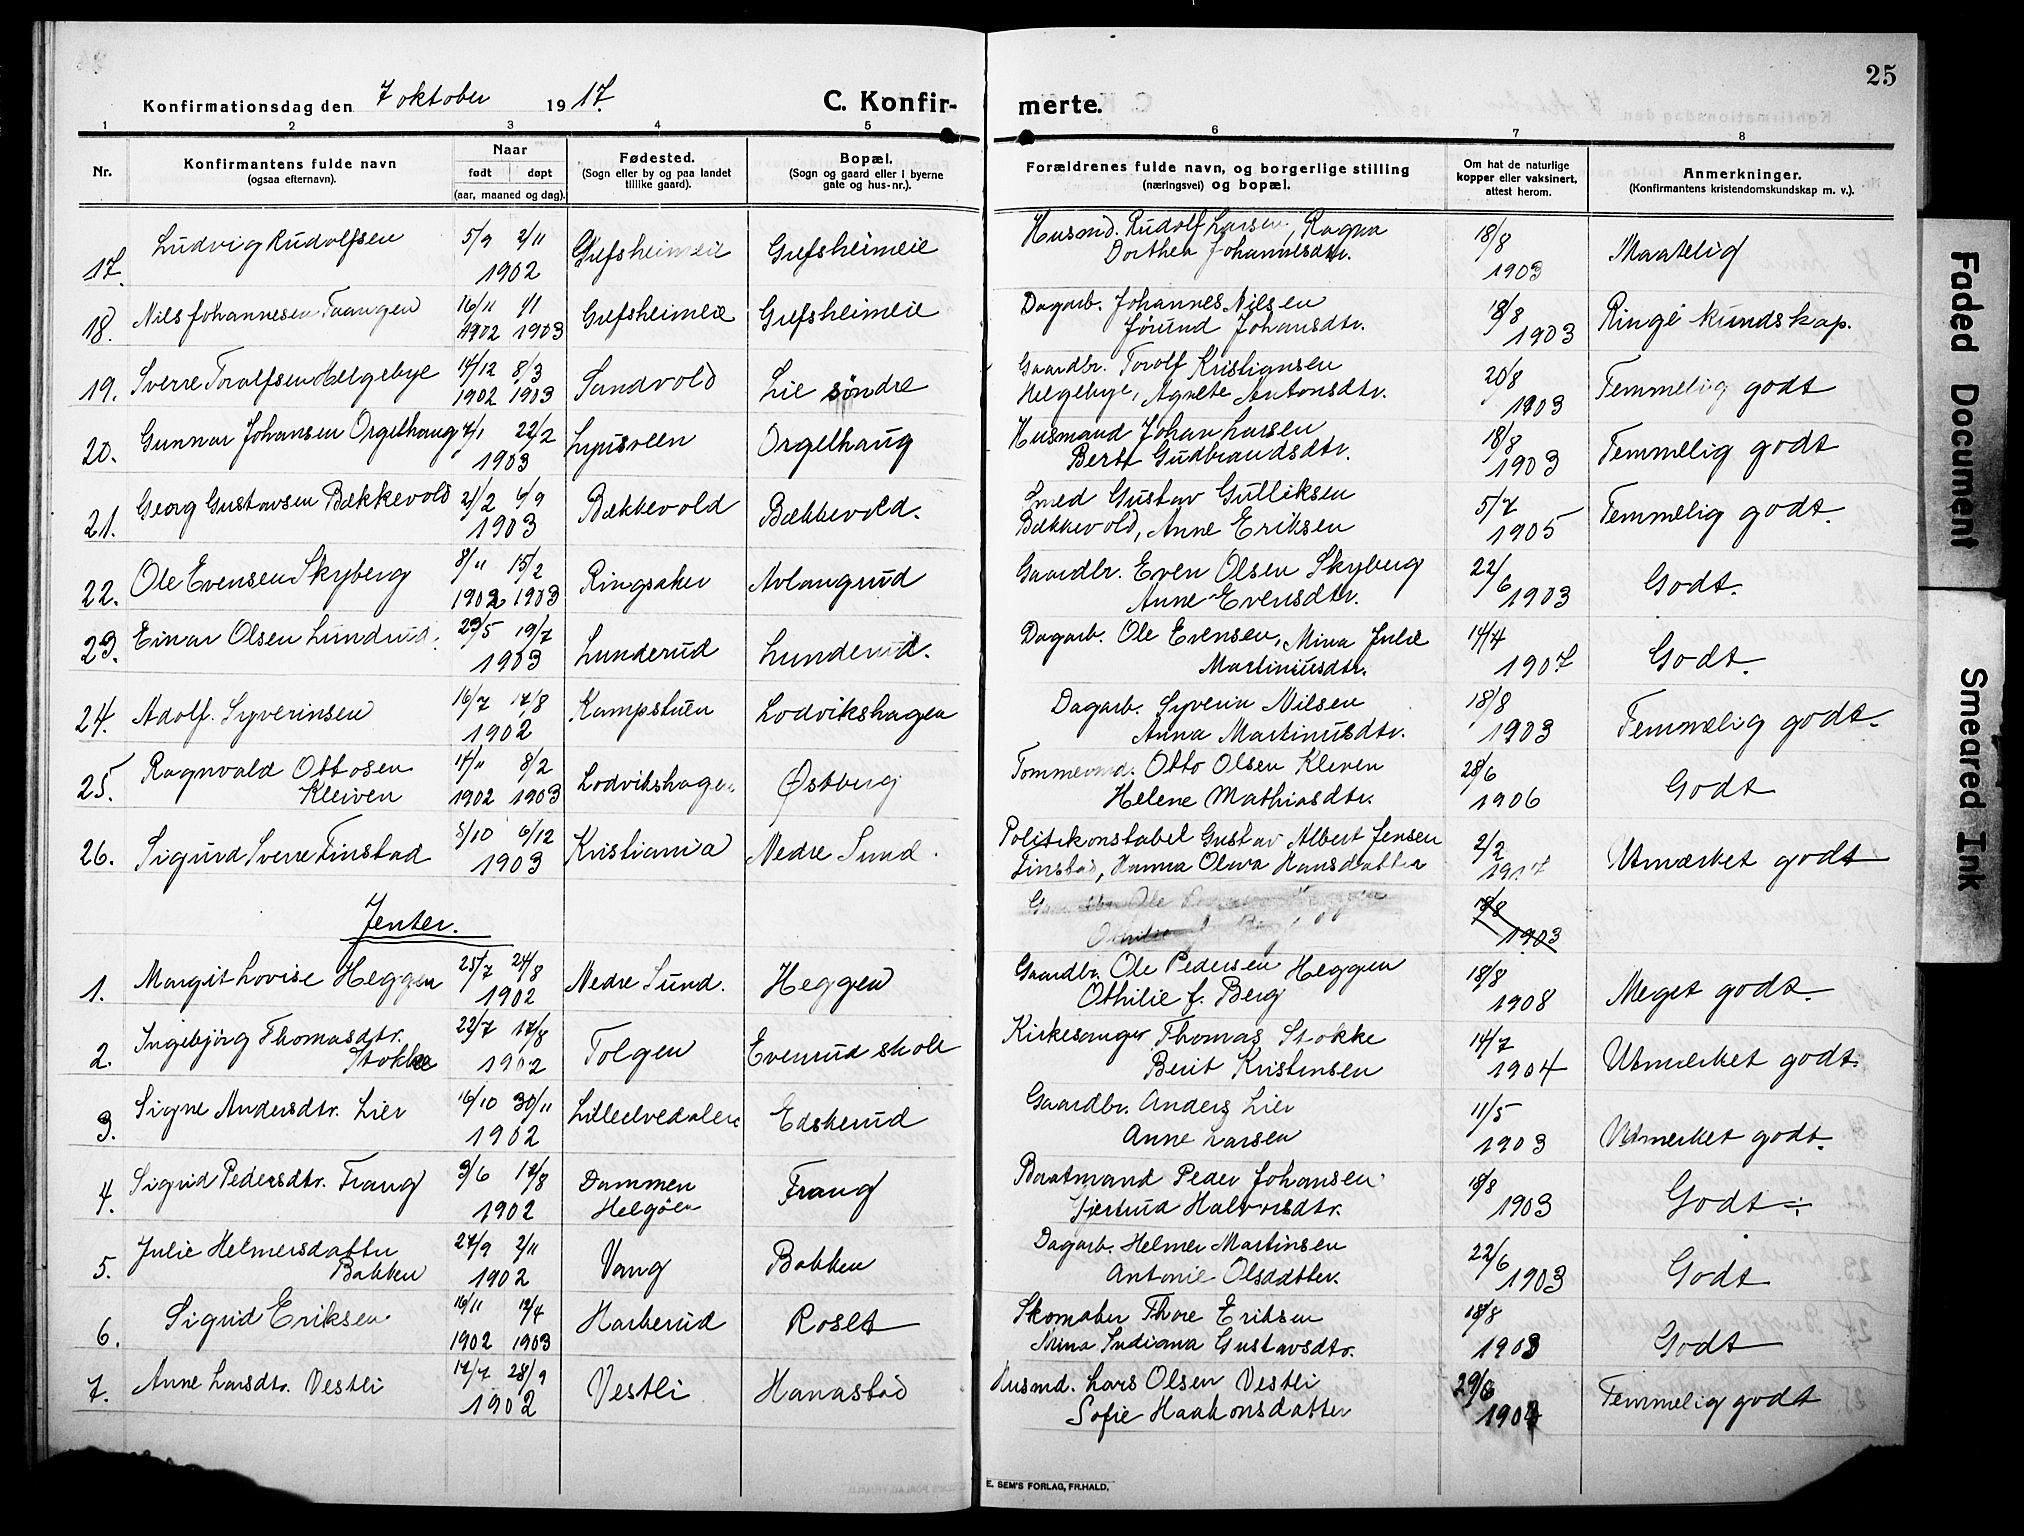 25
Konfirmationsdag den 7 oktober 1917.
C. Konfirmerte.
1 2 3 4 5 6 7 8
Nr.
Konfirmantens fulde navn
(ogsaa efternavn).
Naar
født døpt
(aar, maaned og dag).
Fødested.
(Sogn eller by og paa landet
tillike gaard).
Bopæl.
(Sogn og gaard eller i byerne
gate og hus-nr.).
Forældrenes fulde navn, og borgerlige stilling
(næringsvei) og bopæl.
Om hat de naturlige
kopper eller vaksinert,
attest herom.
Anmerkninger.
(Konfirmantens kristendomskundskap m. v.).
17. Ludvig Rudolfsen 5/9 2/11 1902 Grefsheimeie Grefsheimeie Husmd. Rudolf Larsen, Ragna
Dorthea Johannesdtr. 18/8 1903 Maatelig
18. Nils Johannesen Taangen 16/11 1902 1/1 1903 Grefsheimeie Grefsheimeie Dagarb. Johannes Nilsen
Jørund Johansdtr. 18/8 1903 Ringe kundskap.
19. Sverre Torolfsen Helgebye 14/12 1902 8/3 1903 Sandvold Lie søndre Gaardbr. Torolf Kristiansen
Helgebye, Agnete Antonsdtr. 20/8 1903 Temmelig godt
20. Gunnar Johansen Orgelhaug 4/1 22/2 1903 Lyusveen Orgelhaug Husmand Johan Larsen
Berte Gudbrandsdtr. 18/8 1903 Temmelig godt
21. Georg Gustavsen Bækkevold 21/2 4/9 1903 Bækkevold Bækkevold. Smed Gustav Gulliksen
Bækkevold, Anne Eriksen 5/7 1905 Temmelig godt.
22. Ole Evensen Skyberg 8/11 1902 15/2 1903 Ringsaker Avlangrud Gaardbr. Even Olsen Skyberg
Anne Evensdtr. 22/6 1903 Godt.
23. Einar Olsen Lundrud. 29/5 19/7 1903 Lunderud Lunderud. Dagarb. Ole Evensen, Mina Julie
Martiniusdtr. 14/4 1907 Godt.
24. Adolf Syverinsen 16/7 17/8 1902 Kampstuen Lodvikshagen Dagarb. Syverin Nilsen
Anna Martinusdtr. 18/8 1903 Temmelig godt.
25. Ragnvald Ottosen
Kleiven 14/11 1902 8/2 1903 Lodvikshagen Østberg Tømmermd. Otto Olsen Kleven
Helene Mathiasdtr. 28/6 1906 Godt
26. Sigurd Sverre Finstad 5/10 6/12 1903 Kristiania Nedre Sund. Politikonstabel Gustav Albert Jensen
Finstad, Hanna Oliva Hansdatter 2/2 1917 Utmærket godt
18/8 1903
Jenter.
1. Margit Lovise Heggen 25/7 24/8 1902 Nedre Sund. Heggen Gaardbr. Ole Pedersen Heggen
Othilie f. Berg 18/8 1908 Meget godt.
2. Ingebjörg Thomasdtr.
Stokke 22/7 17/8 1902 Tolgen Evenrud skole Kirkesanger Thomas Stokke
Berit Kristensen 14/7 1904 Utmerket godt.
3. Signe Andersdtr. Lier 16/10 30/11 1902 Lilleelvedalen Edskerud Gaardbr. Anders Lier
Anne Larsen 11/5 1903 Utmerket godt.
4. Sigrid Pedersdtr. Frang 9/6 17/8 1902 Dammen
Helgöen Frang Baatmand Peder Johansen
Gjertrud Halvorsdtr. 18/8 1903 Godt
5. Julie Helmersdatter
Bakken 27/9 2/11 1902 Vang Bakken Dagarb. Helmer Martinsen
Antonie Olsdatter. 22/6 1903 Godt
6. Sigrid Eriksen 16/11 1902 12/4 1903 Harberud Roset Skomaker Thore Eriksen
Mina Indiana Gustavsdtr. 18/8 1903 Godt
7. Anne Larsdtr. Vestli 17/7 28/9 1902 Vestli Hanastad Husmd. Lars Olsen Vestli
Sofie Haakonsdatter 29/6 1904 Temmelig godt
E. SEM'S FORLAG, FR.HALD.
Faded Document
Smeared Ink